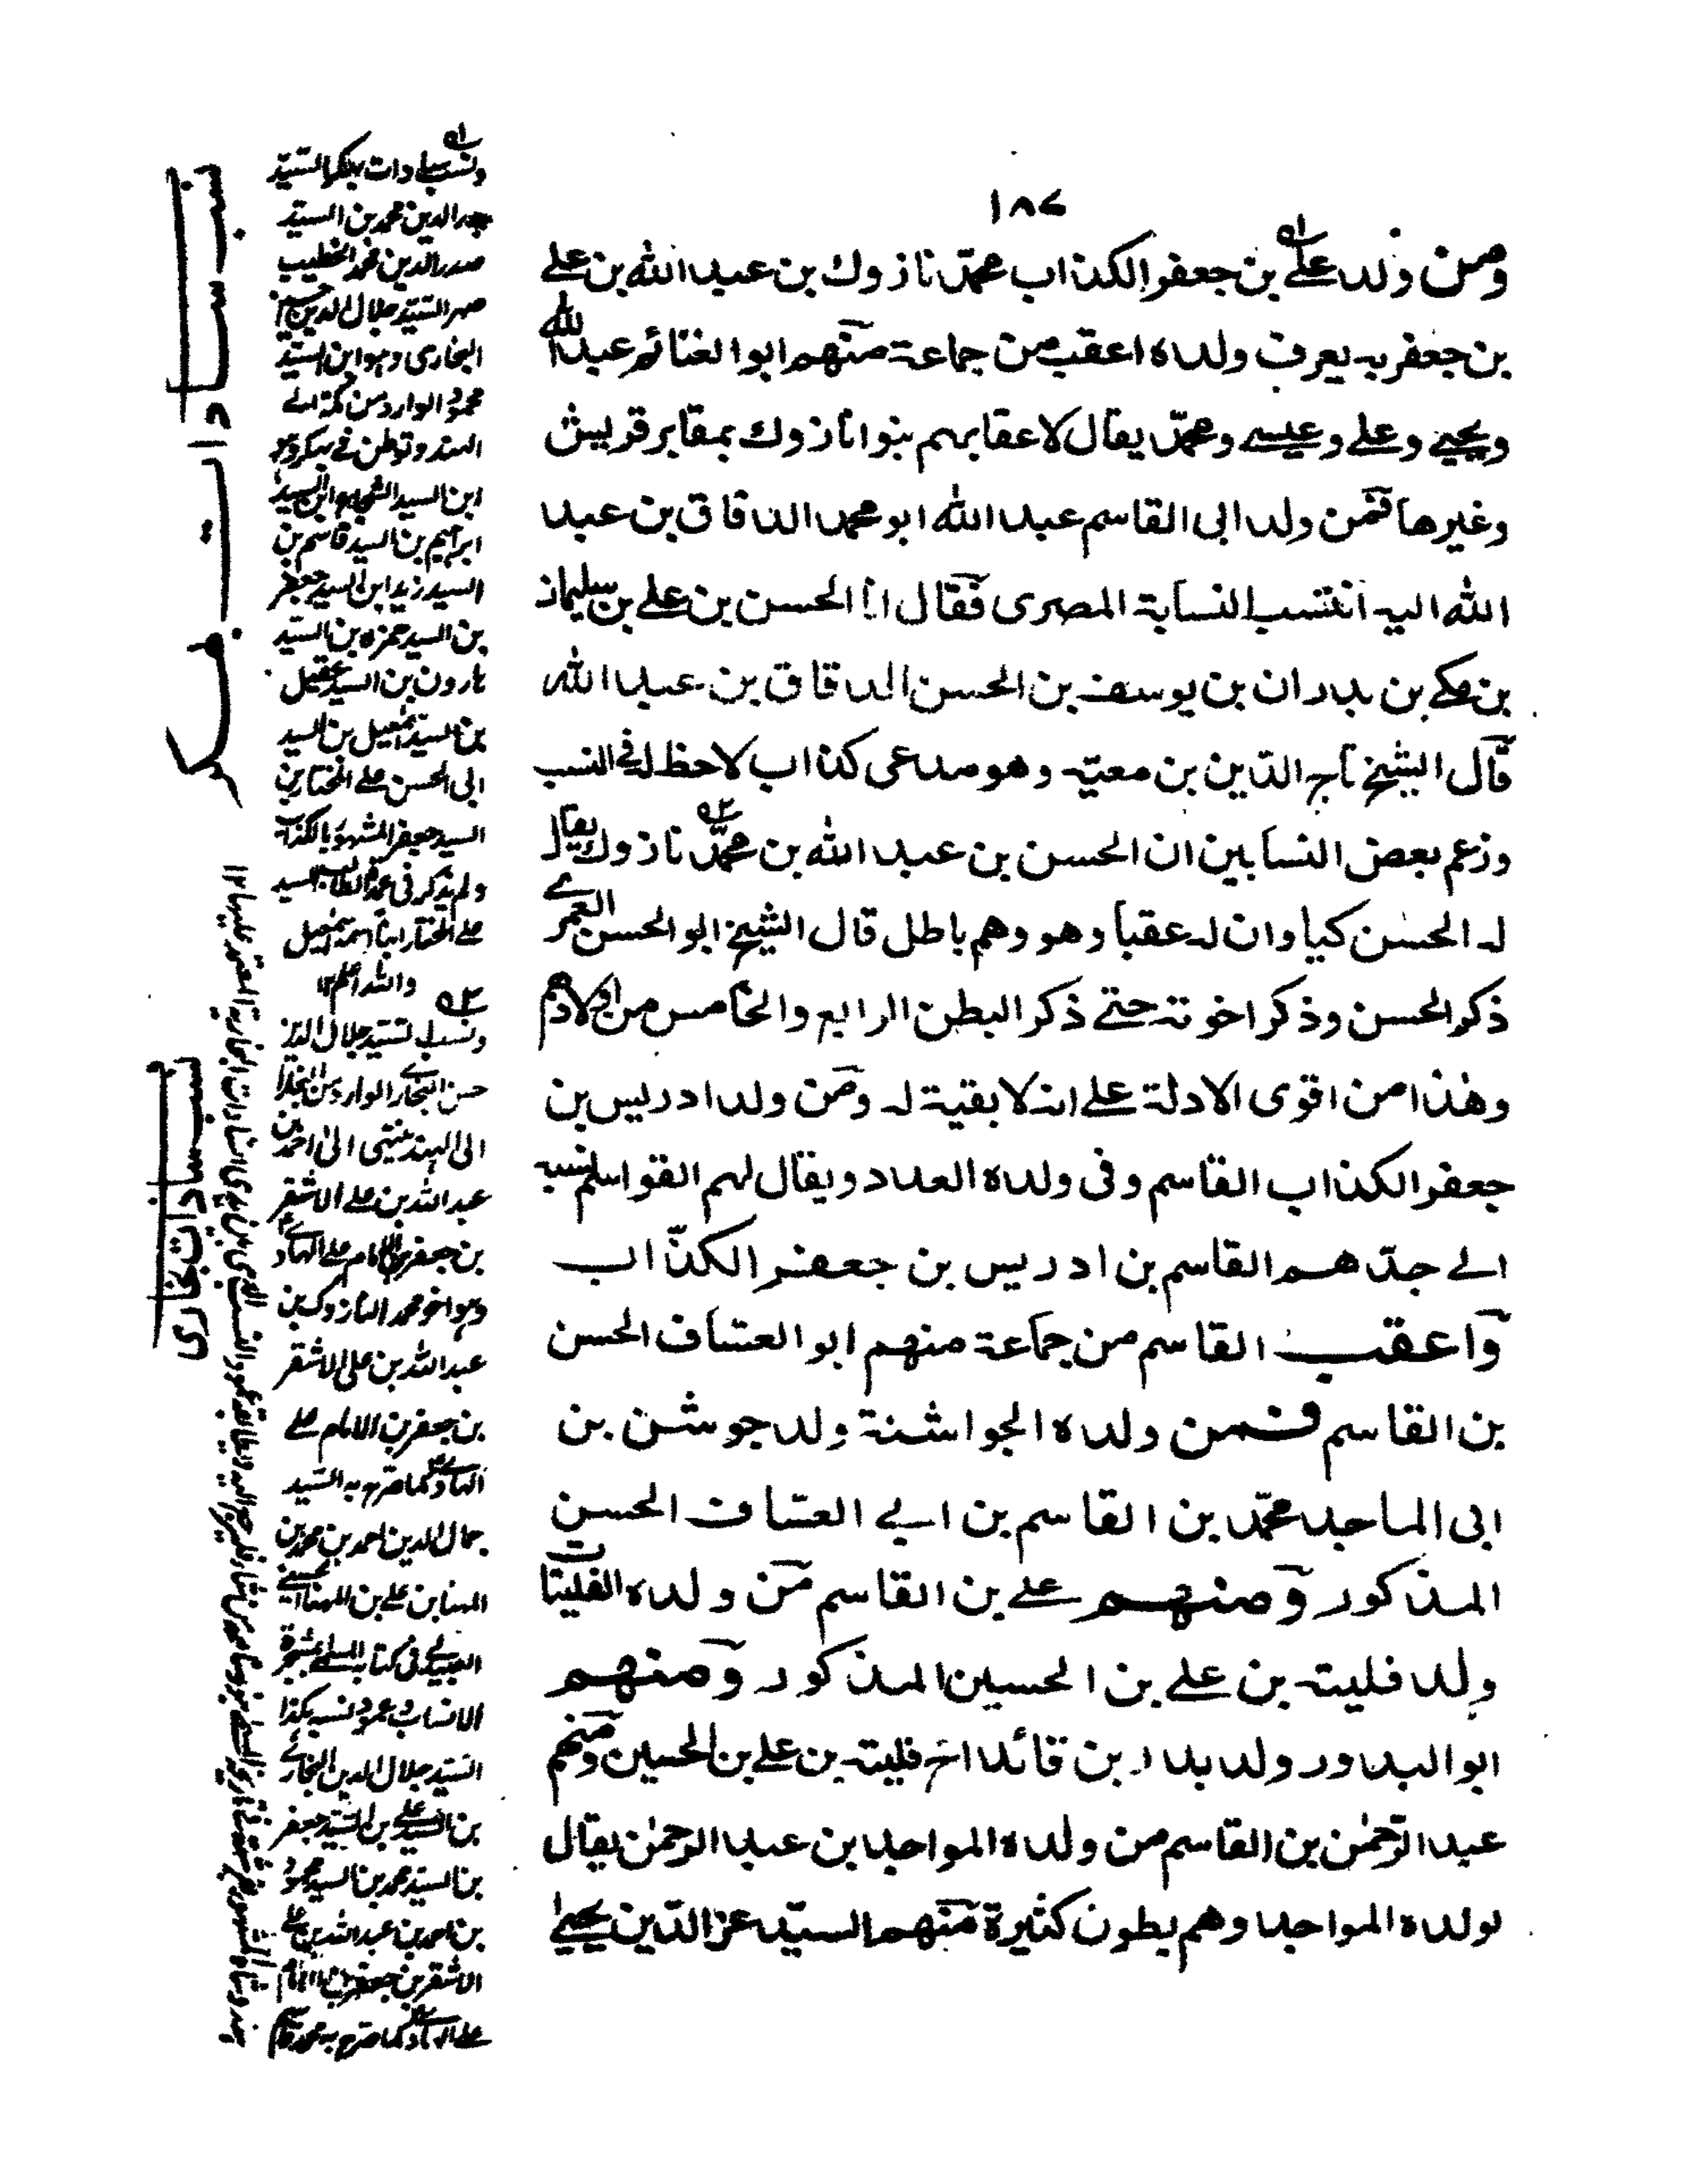 ١٨٧
ومن ولد علي بن جعفر الكذاب محمّد نازوك بن عبد الله بن علي
بن جعفر به يعرف ولده اعقب من جماعة منهم ابو الغنائم عبد الله
ويحيى وعلي وعيسى ومحمّد يقال لاعقابهم بنو انازوك بمقابر قريش
وغيرها فمن ولد ابى القاسم عبد الله ابو محمد الدقاق بن عبد
الله اليه انتسب النسابة المصرى فقال انا الحسن بن علي بن سليمان
بن مكي بن بدران بن يوسف بن الحسن الدقاق بن عبد الله
قال الشيخ تاج الدّين بن معيّة وهو مدعى كذاب لا حظ له في النسب
وزعم بعض النسابين ان الحسن بن عبد الله بن محمّد نازوك يقال
له الحسن كيا وان له عقبا وهو وهم باطل قال الشيخ ابو الحسن العمري
ذكر الحسن وذكر اخوته حتى ذكر البطن الرابع والخامس من اولادهم
وهٰذا من اقوى الادلة علي انه لا بقية له ومن ولد ادريس بن
جعفر الكذاب القاسم وفى ولده العدد ويقال لهم القواسم نسبه
الي جدّهم القاسم بن ادريس بن جعفر الكذّاب
واعقب القاسم من جماعة منهم ابو العسّاف الحسن
بن القاسم فمن ولده الجواشنة ولد جوشن بن
ابى الماجد محمّد بن القاسم بن ابي العسّاف الحسن
المذكور ومنهم علي بن القاسم من ولده الفليتات
ولد فليته بن علي بن الحسين المذكور ومنهم
ابو البدور ولد بدار بن قائد اخ فليته بن علي بن الحسين ومنهم
عبد الرّحمٰن بن القاسم من ولده المواجد بن عبد الرحمٰن يقال
لولده المواجد وهم بطون كثيرة منهم السيّد عز الدّين يحيىٰ
نسب سادات بهكر
ونسب سادات بهكر السيّد
بدر الدين محمد بن السيّد
صدر الدين محمد الخطيب
صهر السيّد جلال الدين حسين
البخارى وهو ابن السيّد
محمود الوارد من مكة الي
الهند وتوطن في بهكر وهو
ابن السيد الشجاع ابن السيد
ابراهيم بن السيد قاسم بن
السيد زيد ابن السيد جعفر
بن السيد حمزه بن السيّد
هارون بن السيد عقيل
بن السيد اسمعيل بن السيد
ابى الحسن علي المختار بن
السيد جعفر المشهور بالكذاب
ولم يذكر فى عمدة الطالب السيد
علي المختار ابنا اسمه اسمعيل
والله اعلم ١٢
نسب سادات بخارى
ونسب السيّد جلال الدين
حسن البخاري الوارد من البخارا
الى الهند ينتهى الىٰ احمد بن
عبد الله بن علي الاشقر
بن جعفر بن الامام علي الهادي
وهو اخو محمد النازوك بن
عبد الله بن على الاشقر
بن جعفر بن الامام علي
الهادي كما صرح به السّيد
جمال الدين احمد بن محمد بن
المهنا بن علي بن المهنا الحسيني
العبيدلي فى كتابه المسمى بمشجر
الانساب وعمود نسبه هكذا
السّيد جلال الدين البخاري
بن السيّد علي بن السيّد جعفر
بن السيّد محمد بن السيد محمود
بن احمد بن عبد الله بن علي
الاشقر بن جعفر بن الامام
علي الهادي كما صرح به محمد قاسم